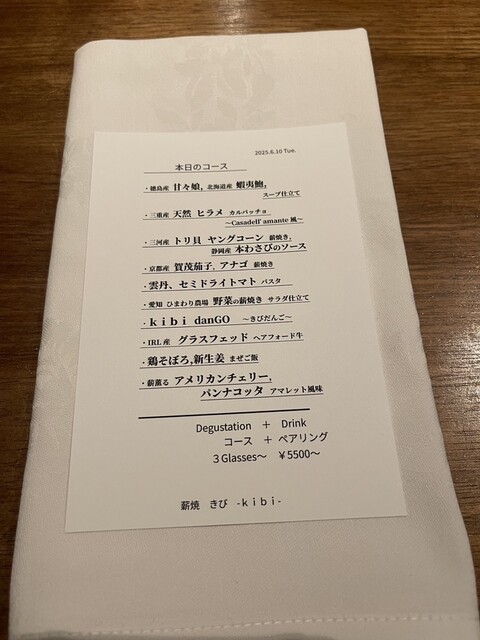 2025.6.10 Tue.
本日のコース
・徳島産 甘々娘, 北海道産 蝦夷鮑,
スープ仕立て
・三重産 天然 ヒラメ カルパッチョ
~Casadell' amante 風~
・三河産 トリ貝 ヤングコーン 薪焼き,
静岡産 本わさびのソース
・京都産 賀茂茄子, アナゴ 薪焼き
・雲丹、セミドライトマト パスタ
・愛知 ひまわり農場 野菜の薪焼き サラダ仕立て
・kibi danGO ~きびだんご~
・IRL産 グラスフェッド ヘアフォード牛
・鶏そぼろ,新生姜 まぜご飯
・薪薫る アメリカンチェリー,
パンナコッタ アマレット風味
Degustation + Drink
コース + ペアリング
3Glasses~ ¥5500~
薪焼 きび -kibi-